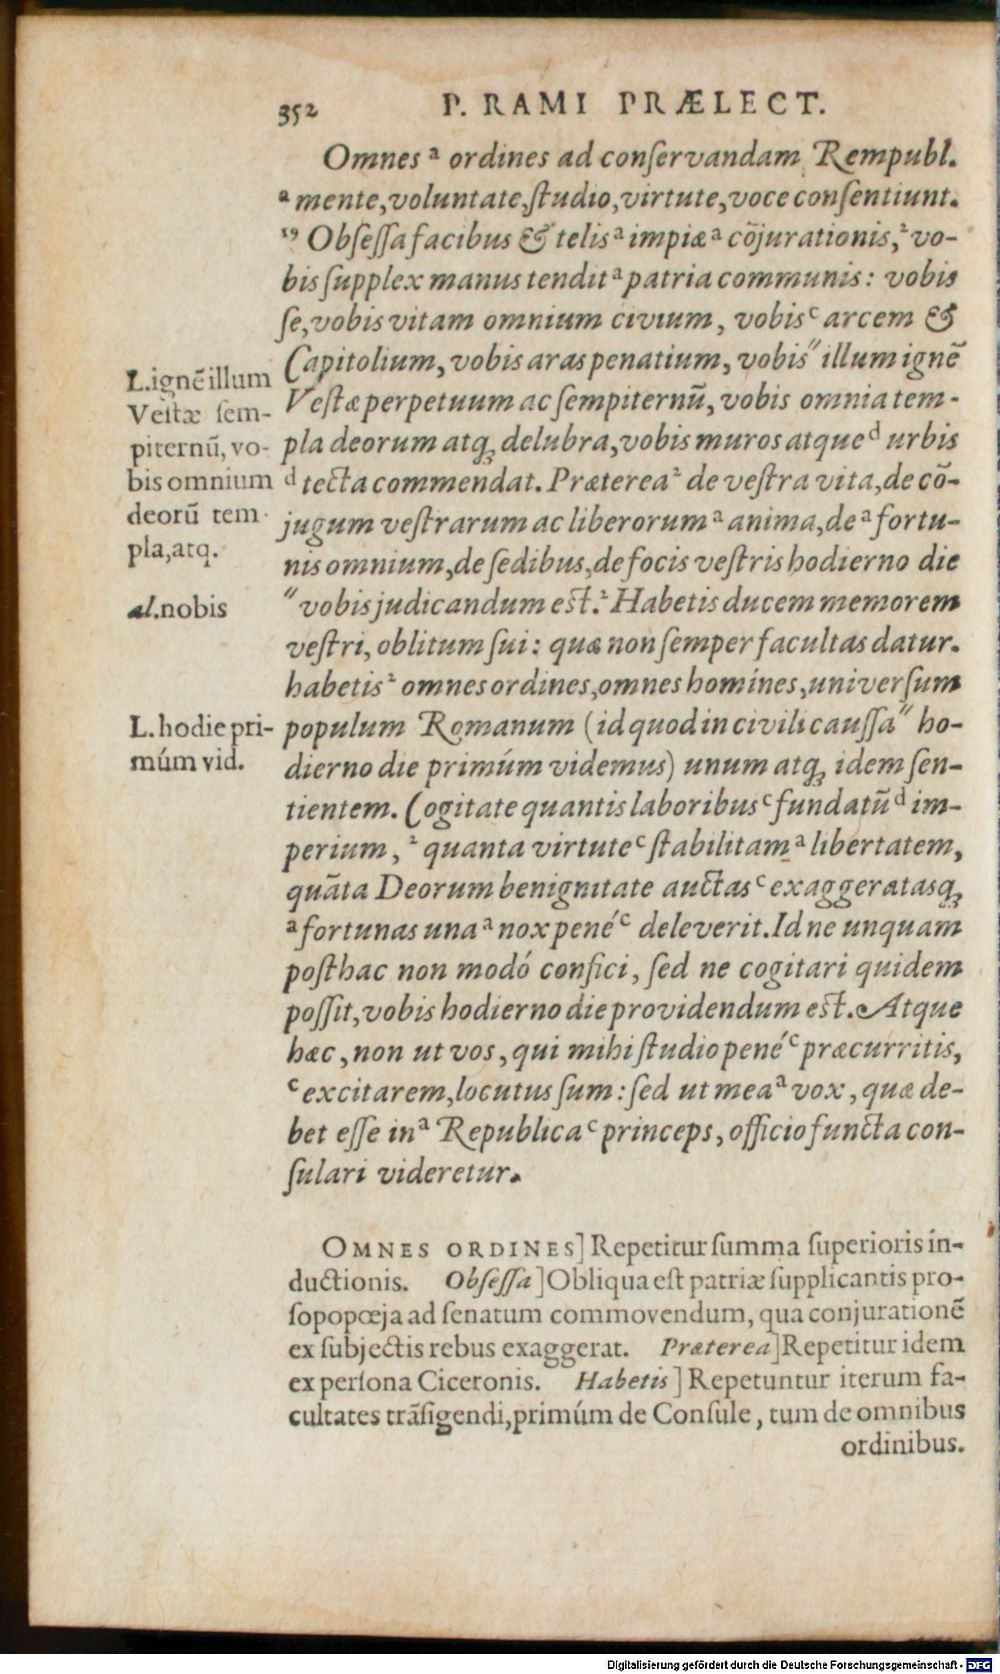 352 P. RAMI PRÆLECT.
Omnes ᵃ ordines ad conſervandam Rempubl.
ᵃ mente, voluntate, ſtudio, virtute, voce conſentiunt.
¹⁹ Obſeſſa facibus & telis ᵃ impiæ ᵃ cõjurationis, ² vo-
bis ſupplex manus tendit ᵃ patria communis: vobis
ſe, vobis vitam omnium civium, vobis ᶜ arcem &
Capitolium, vobis aras penatium, vobis " illum ignẽ
Veſtæ perpetuum ac ſempiternũ, vobis omnia tem-
pla deorum atq; delubra, vobis muros atque ᵈ urbis
ᵈ tecta commendat. Præterea ² de veſtra vita, de cõ-
jugum veſtrarum ac liberorum ᵃ anima, de ᵃ fortu-
nis omnium, de ſedibus, de focis veſtris hodierno die
" vobis judicandum eſt. ² Habetis ducem memorem
veſtri, oblitum ſui: quæ non ſemper facultas datur.
habetis ² omnes ordines, omnes homines, univerſum
populum Romanum (id quod in civili cauſſa " ho-
dierno die primúm videmus) unum atq; idem ſen-
tientem. Cogitate quantis laboribus ᶜ fundatũ ᵈ im-
perium, ² quanta virtute ᶜ ſtabilitam ᵃ libertatem,
quãta Deorum benignitate auctas ᶜ exaggeratasq;
ᵃ fortunas una ᵃ nox pené ᶜ deleverit. Id ne unquam
poſthac non modó confici, ſed ne cogitari quidem
poſſit, vobis hodierno die providendum eſt. Atque
hæc, non ut vos, qui mihi ſtudio pené ᶜ præcurritis,
ᶜ excitarem, locutus ſum: ſed ut mea ᵃ vox, quæ de-
bet eſſe in ᵃ Republica ᶜ princeps, officio functa con-
ſulari videretur.
L. ignẽ illum
Veſtæ ſem-
piternũ, vo-
bis omnium
deorũ tem-
pla, atq.
al. nobis
L. hodie pri-
múm vid.
OMNES ORDINES] Repetitur ſumma ſuperioris in-
ductionis. Obſeſſa] Obliqua eſt patriæ ſupplicantis pro-
ſopopœja ad ſenatum commovendum, qua conjurationẽ
ex ſubjectis rebus exaggerat. Præterea] Repetitur idem
ex perſona Ciceronis. Habetis] Repetuntur iterum fa-
cultates trãſigendi, primúm de Conſule, tum de omnibus
ordinibus.
Digitalisierung gefördert durch die Deutsche Forschungsgemeinschaft - DFG